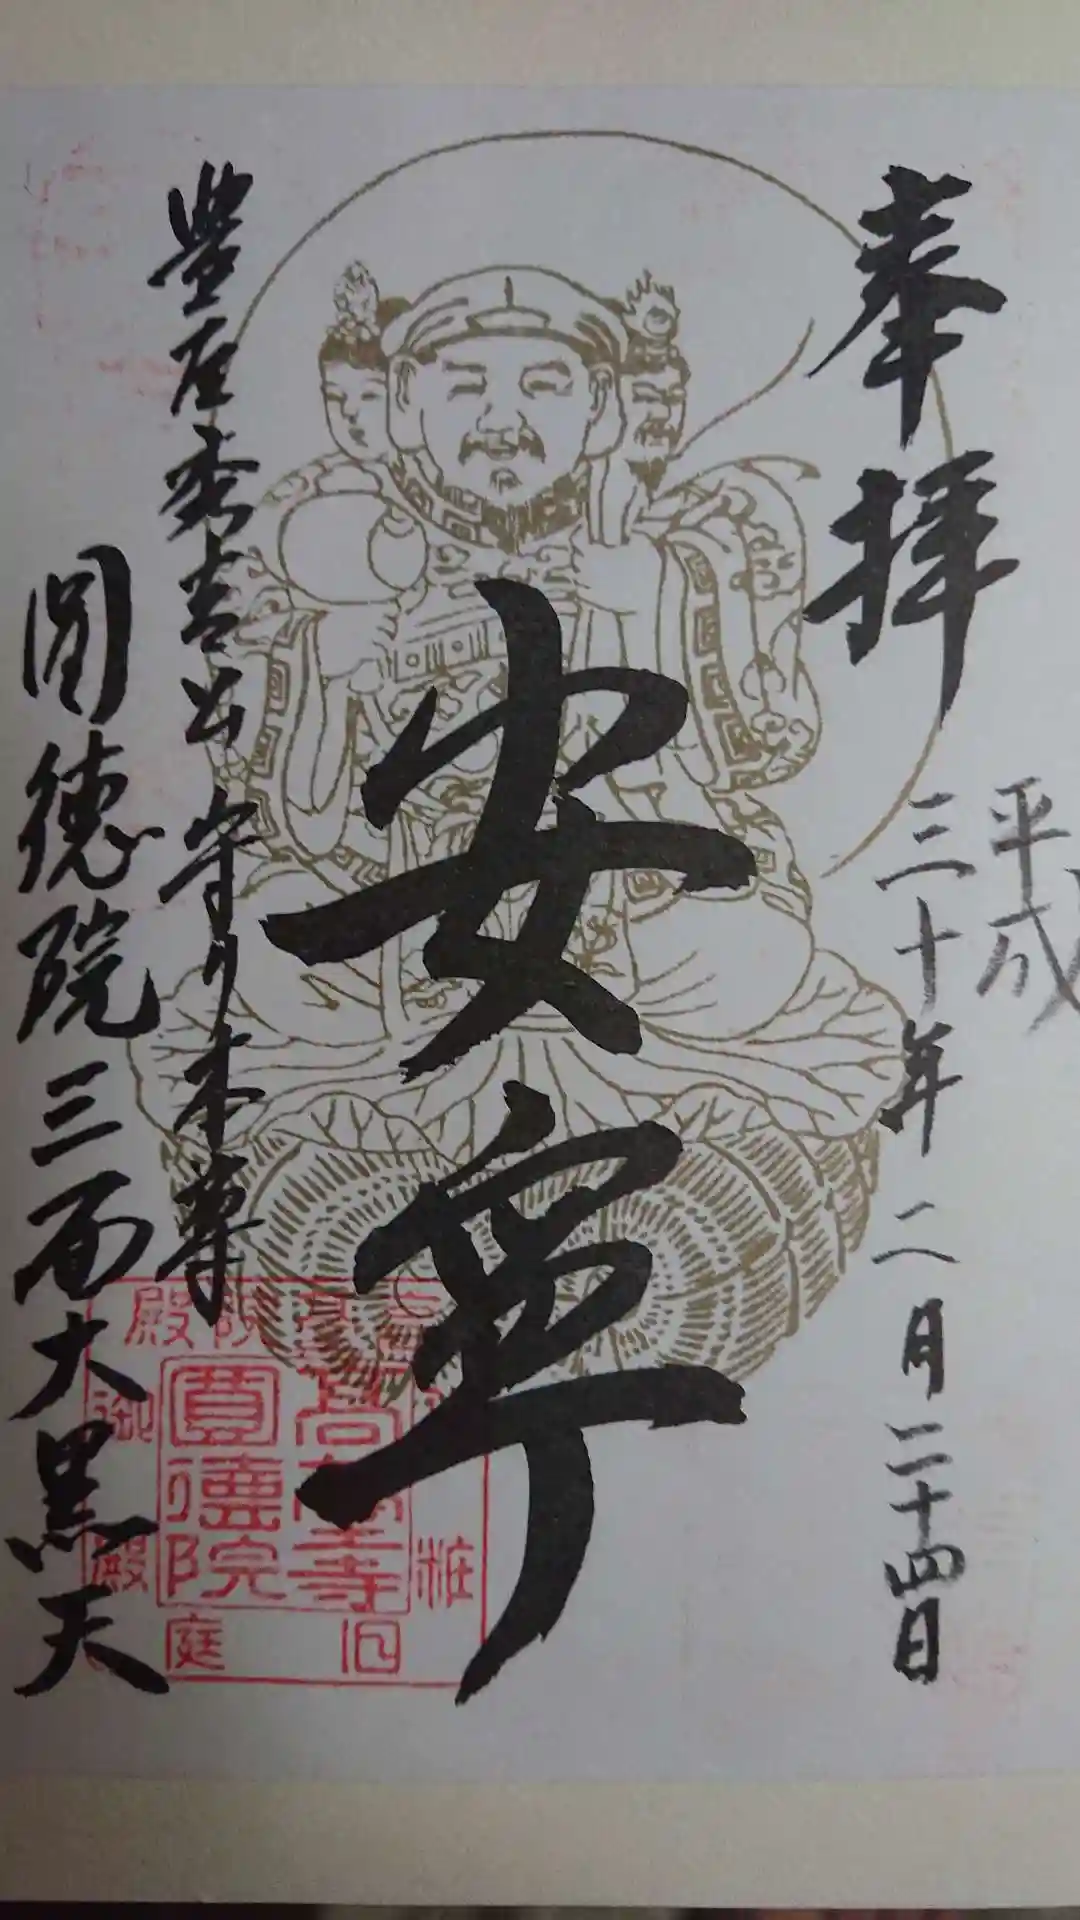 奉拝
平成
三十年二月二十四日
安寧
豊臣秀吉公守り本尊
圓徳院三面大黒天
高
寺
圓德院
殿
御
殿
粧
庭
旧